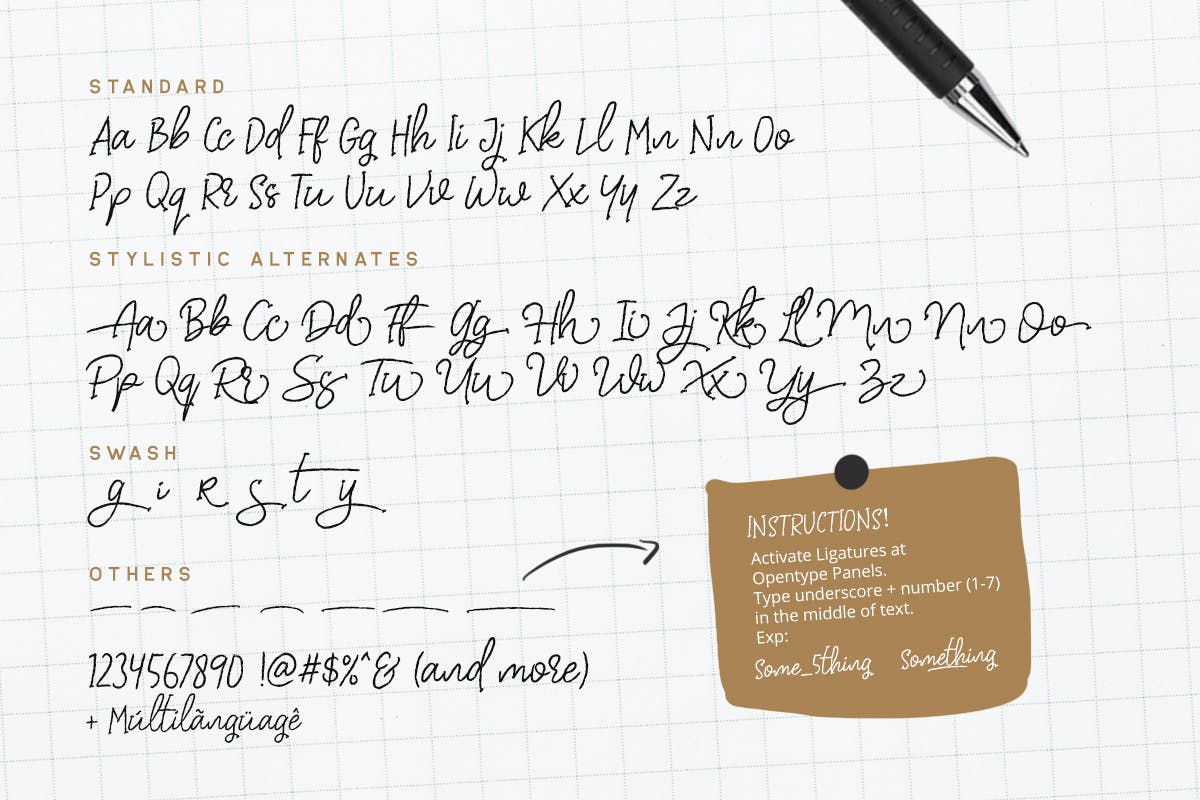 STANDARD
Aa Bb Cc Dd Ff Gg Hh Ii Jj Kk Ll Mn Nn Oo
Pp Qq Rr Ss Tu Uu Vv Ww Xx Yy Zz
STYLISTIC ALTERNATES
Aa Bb Cc Dd Ff Gg Hh Ii Jj Kk Ll Mn Nn Oo
Pp Qq Rr Ss Tu Uu Vv Ww Xx Yy Zz
SWASH
g i r s t y
OTHERS
1234567890 !@#$%^& (and more)
+ Múltilãngüagê
INSTRUCTIONS!
Activate Ligatures at
Opentype Panels.
Type underscore + number (1-7)
in the middle of text.
Exp:
Some_5thing Something